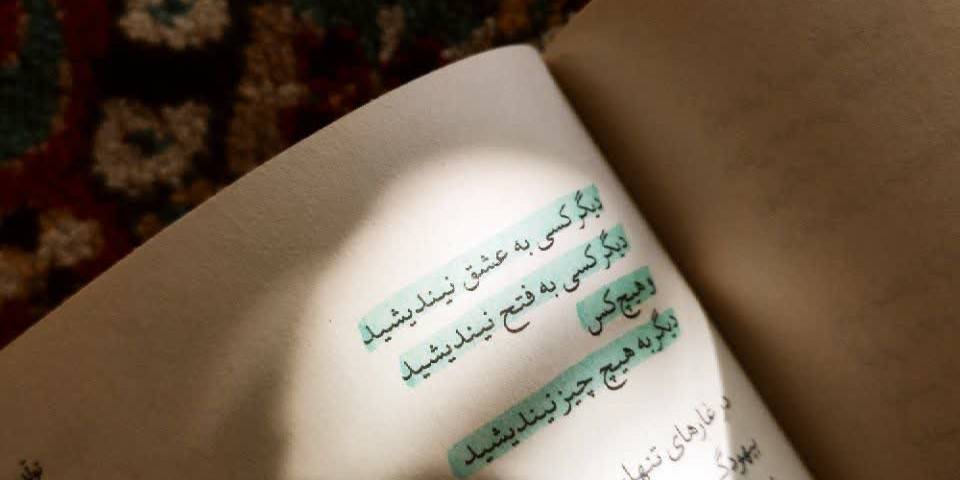 دیگر کسی به عشق نیندیشید
دیگر کسی به فتح نیندیشید
و هیچ کس
دیگر به هیچ چیز نیندیشید
در غارهای تنهایی
بیهودگی